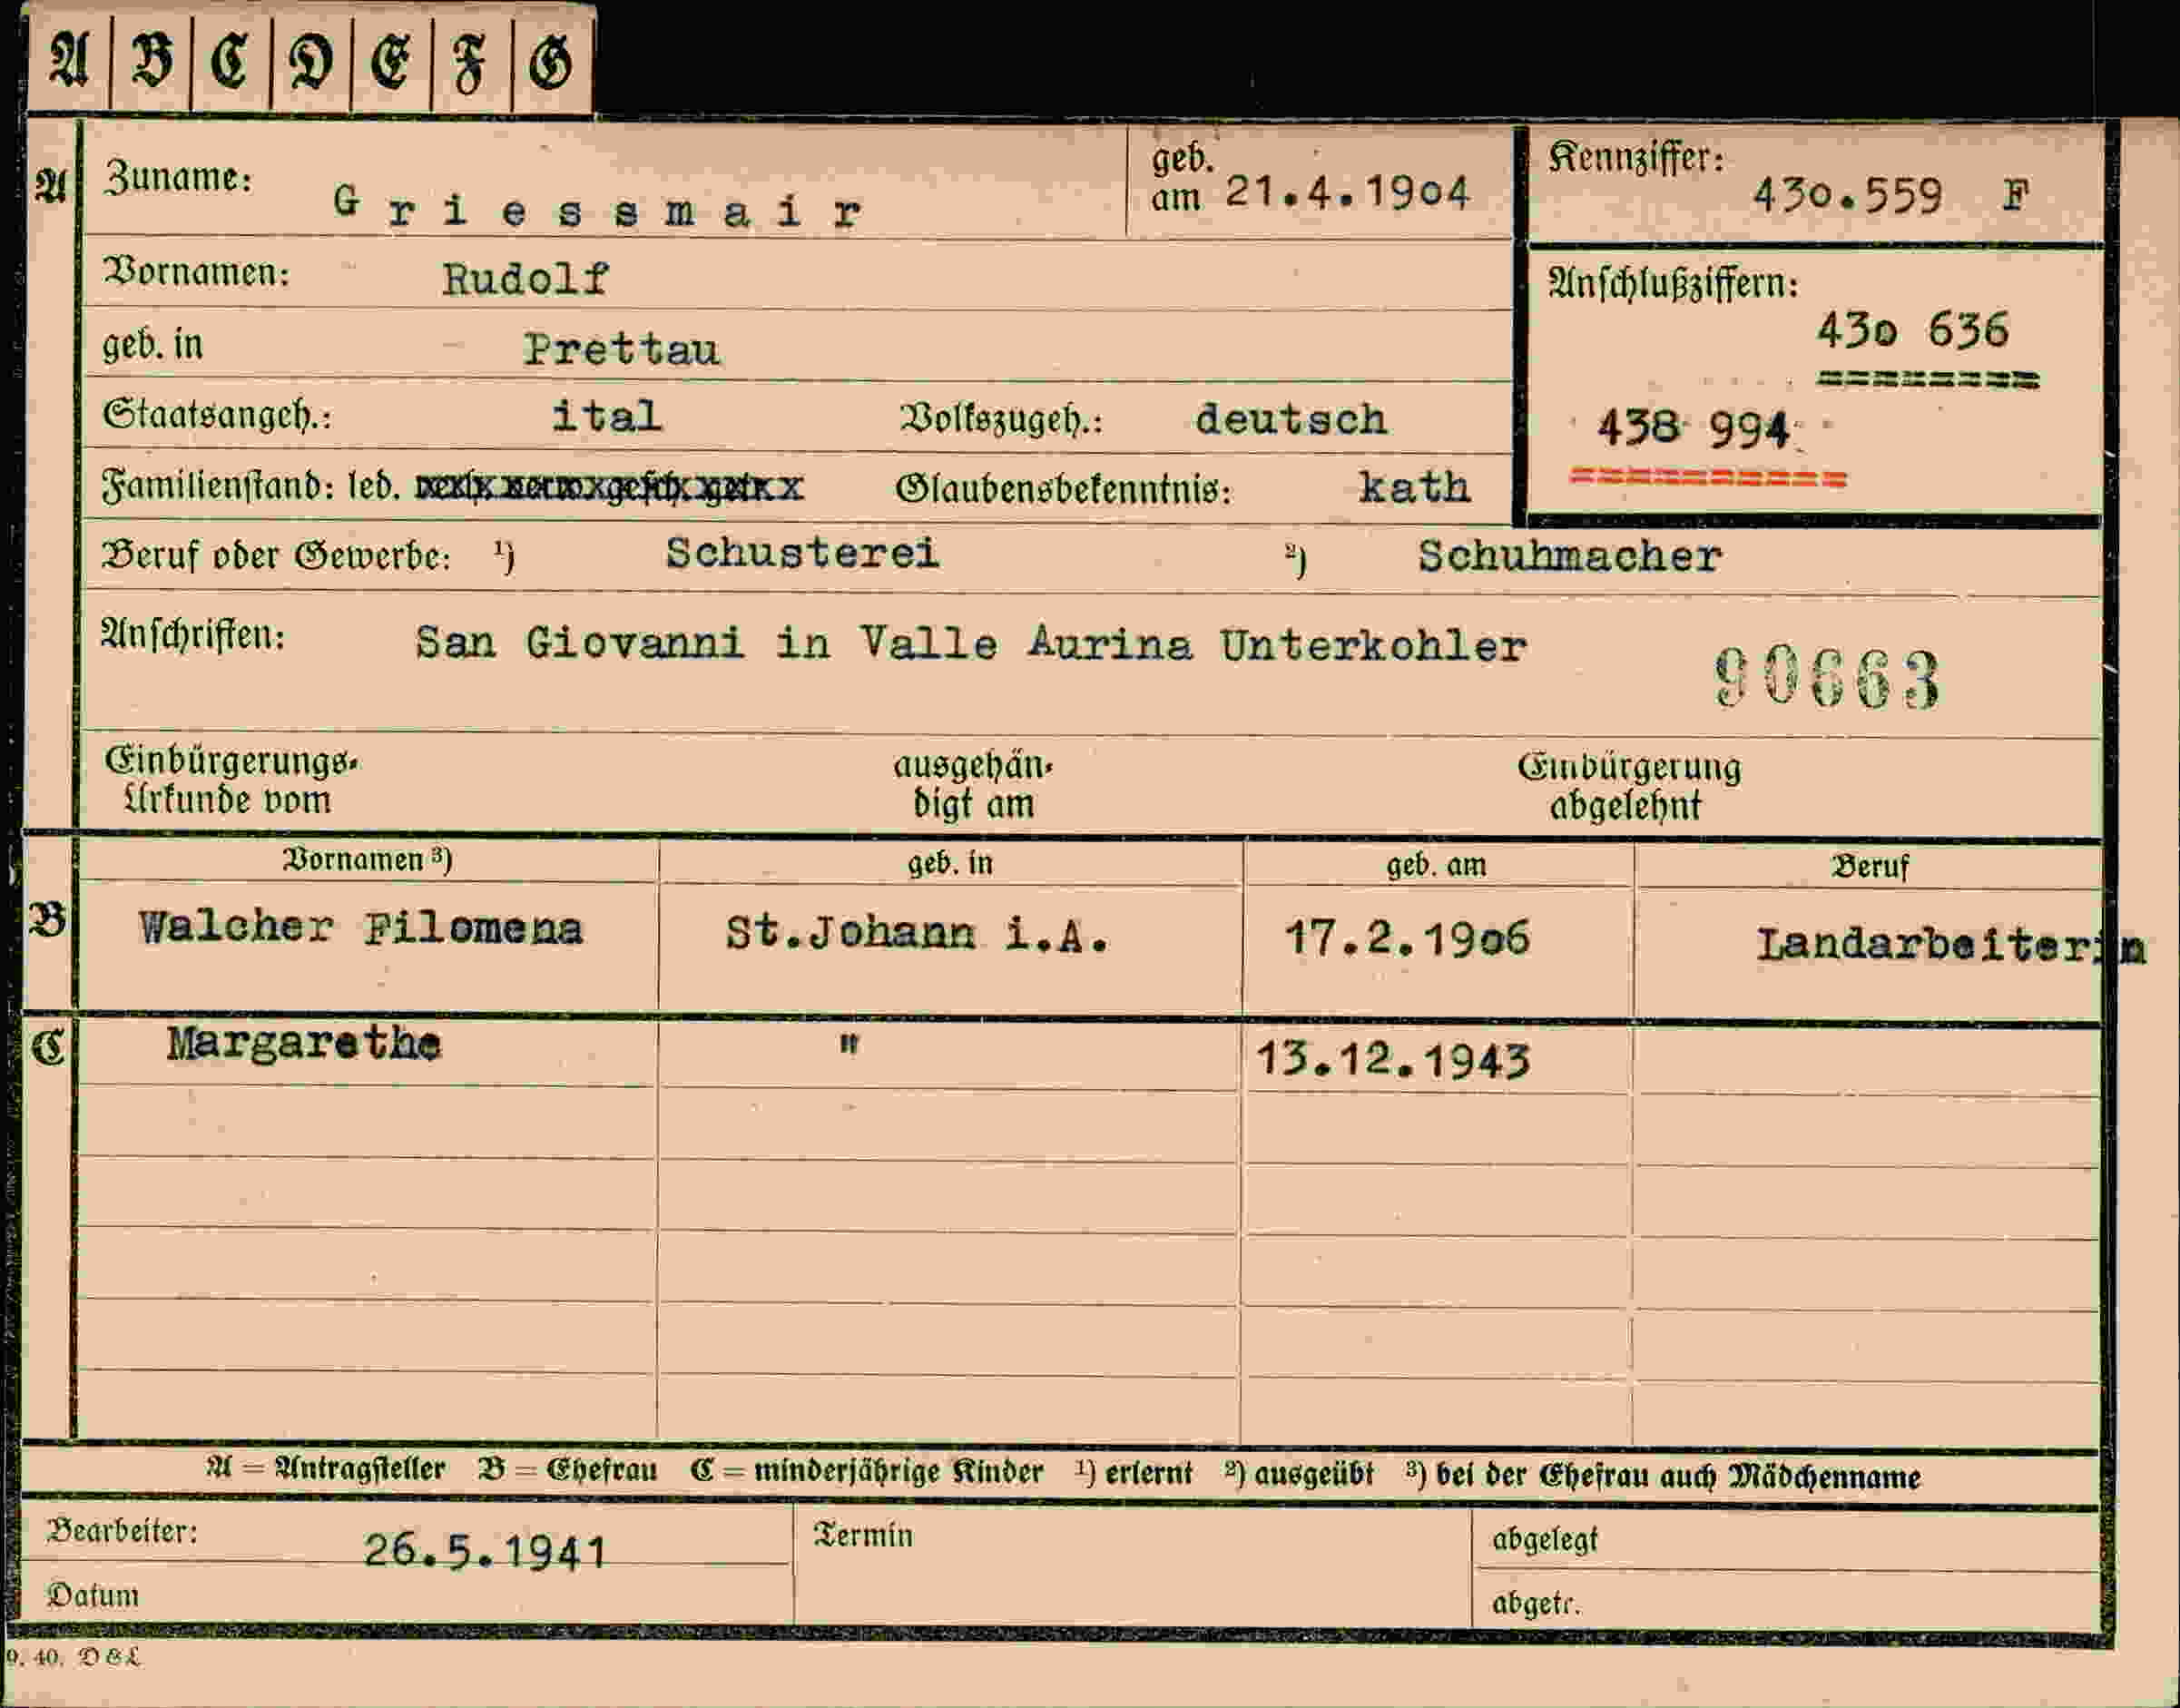 A B C D E F G
A Zuname: Griessmair geb. am 21.4.1904 Kennziffer: 430.559 F
Vornamen: Rudolf
Anschlußziffern:
430 636
========
geb. in Prettau
Staatsangeh.: ital Volkszugeh.: deutsch
438 994
==========
Familienstand: led. Glaubensbekenntnis: kath
Beruf oder Gewerbe: ¹) Schusterei ²) Schuhmacher
Anschriften: San Giovanni in Valle Aurina Unterkohler
90663
Einbürgerungs- ausgehän- Einbürgerung
Urkunde vom digt am abgelehnt
Vornamen ³) geb. in geb. am Beruf
B Walcher Filomena St.Johann i.A. 17.2.1906 Landarbeiterin
C Margarethe " 13.12.1943
A = Antragsteller B = Ehefrau C = minderjährige Kinder ¹) erlernt ²) ausgeübt ³) bei der Ehefrau auch Mädchenname
Bearbeiter: 26.5.1941 Termin abgelegt
Datum abgetr.
9. 40. D & L